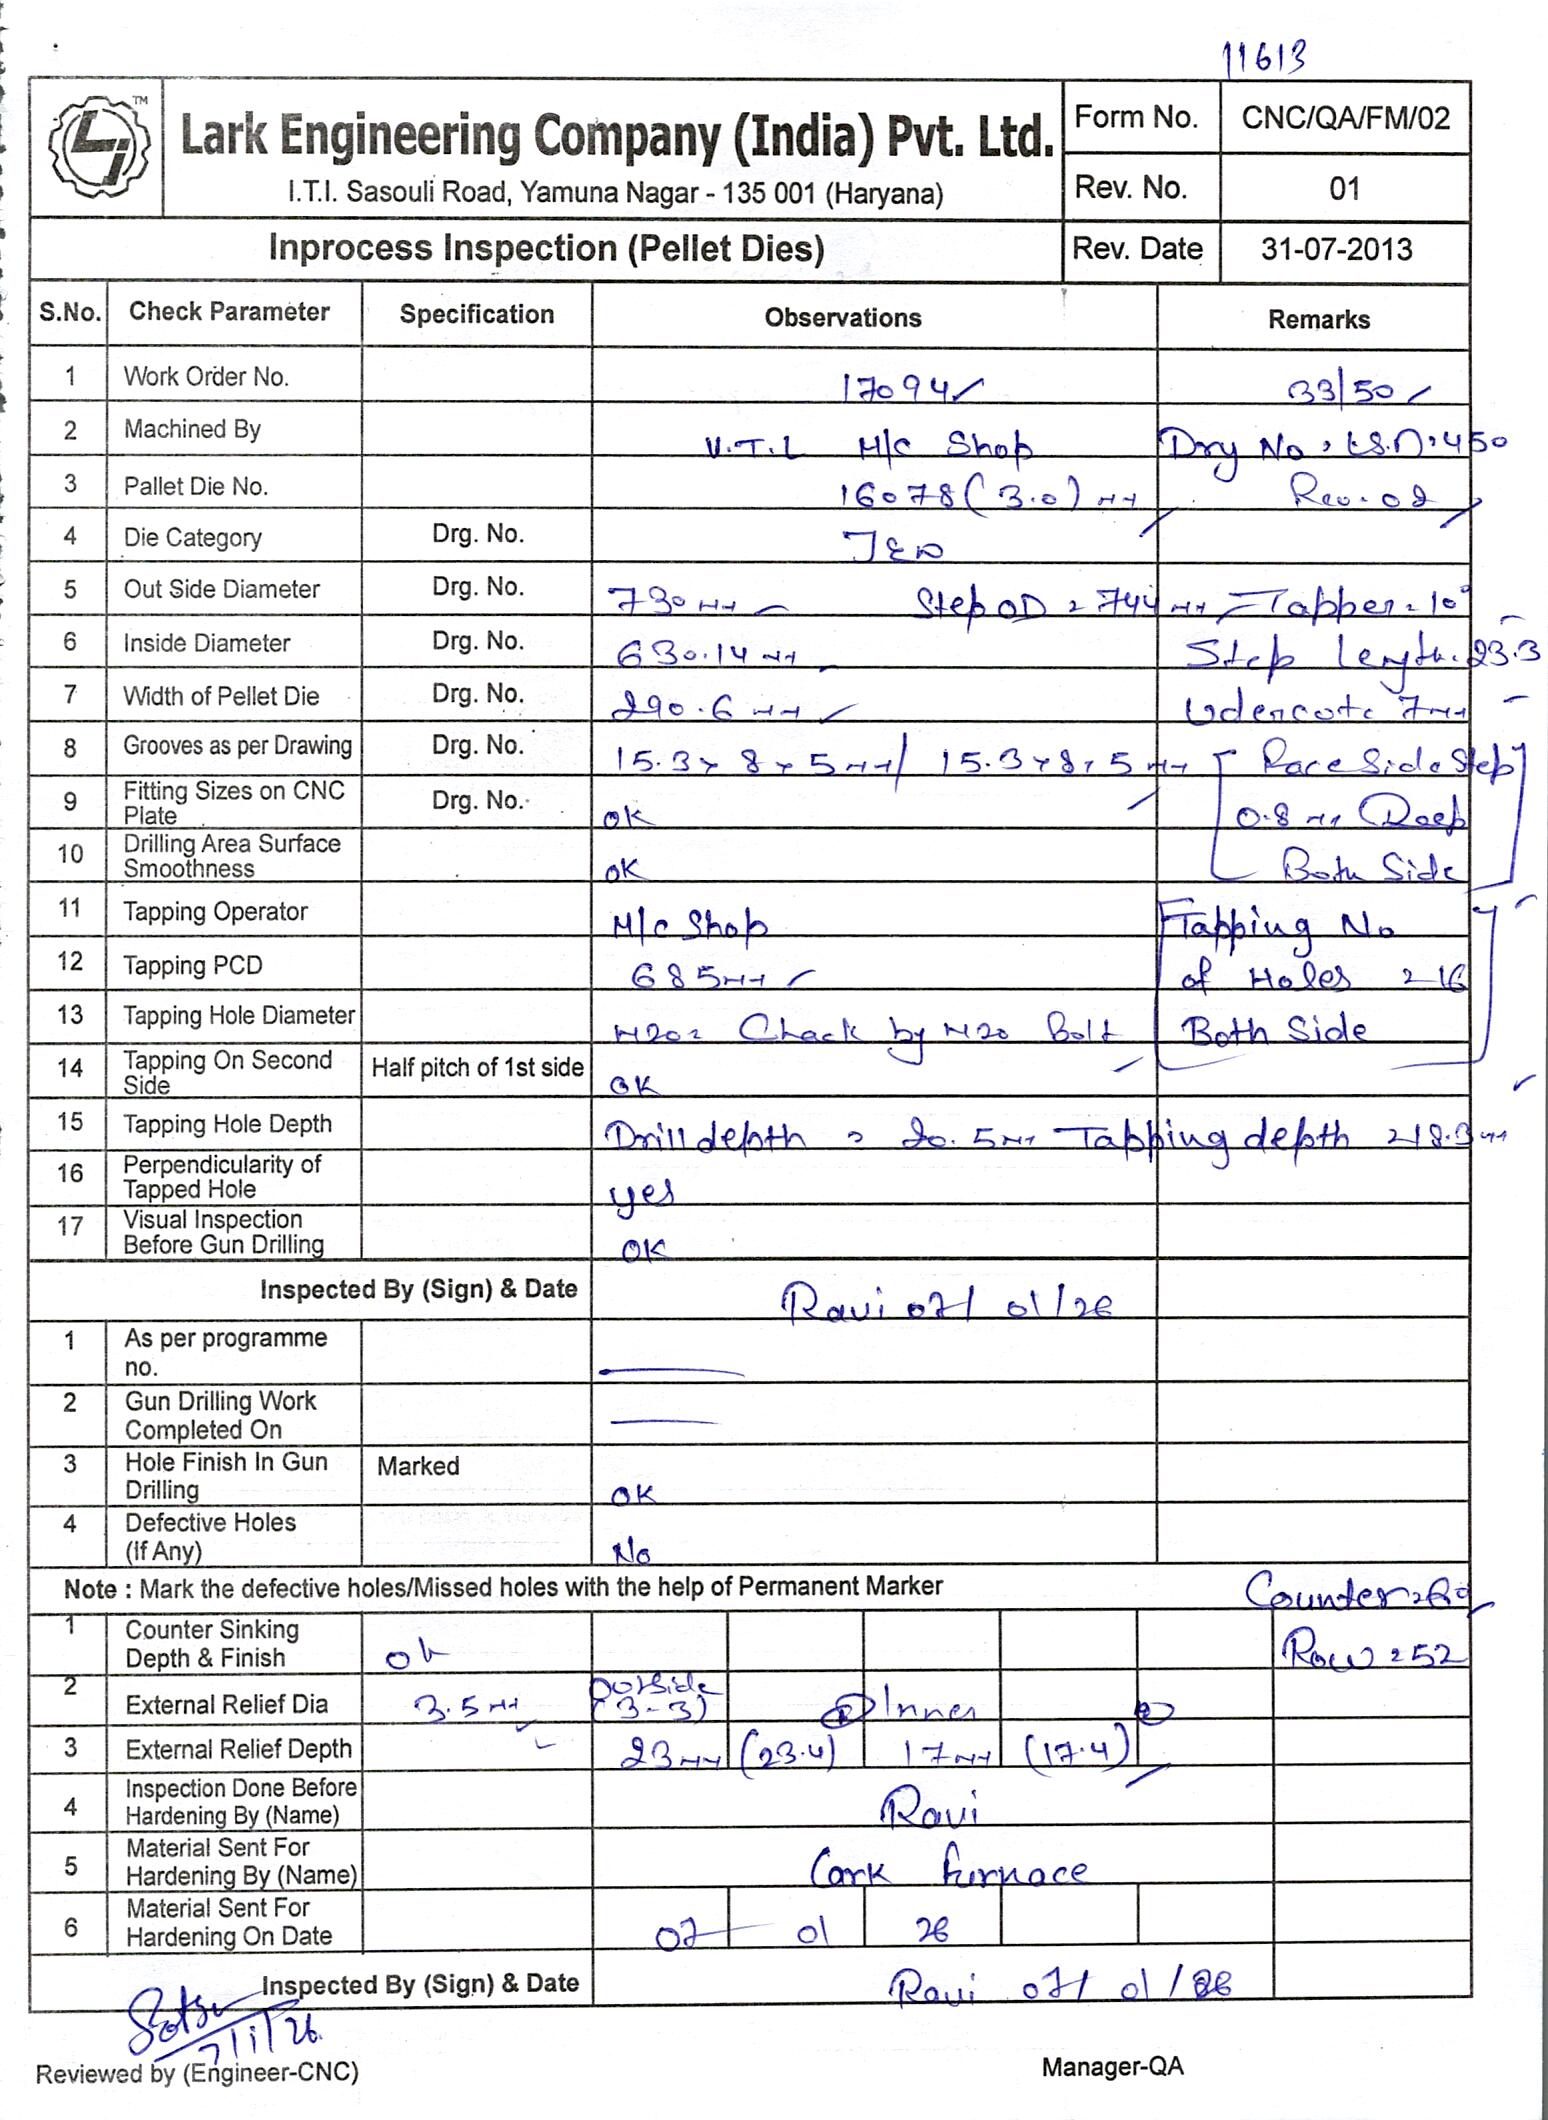 11613
TM
Lark Engineering Company (India) Pvt. Ltd.
I.T.I. Sasouli Road, Yamuna Nagar - 135 001 (Haryana)
Form No. CNC/QA/FM/02
Rev. No. 01
Inprocess Inspection (Pellet Dies) Rev. Date 31-07-2013
S.No. Check Parameter Specification Observations Remarks
1 Work Order No. 17094 33/50
2 Machined By V.T.L M/c Shop Dry No
3 Pallet Die No. 16078 (3.0) Rev. 02
4 Die Category Drg. No.
5 Out Side Diameter Drg. No. 730 Step OD = 744 Tapper = 10°
6 Inside Diameter Drg. No. 630.14 Step Length 23.3
7 Width of Pellet Die Drg. No. 290.6
8 Grooves as per Drawing Drg. No. 15.3 x 8 x 5 / 15.3 x 8 x 5 Side Step
9 Fitting Sizes on CNC Plate Drg. No. OK 0.8 Deep
10 Drilling Area Surface Smoothness OK Both Side
11 Tapping Operator M/c Shop Tapping No
12 Tapping PCD 685 of Holes = 16
13 Tapping Hole Diameter M20 = Chack by M20 Bolt Both Side
14 Tapping On Second Side Half pitch of 1st side OK
15 Tapping Hole Depth Drill depth = 20.5 Tapping depth = 18.3
16 Perpendicularity of Tapped Hole yes
17 Visual Inspection Before Gun Drilling OK
Inspected By (Sign) & Date Ravi 07/01/26
1 As per programme no.
2 Gun Drilling Work Completed On
3 Hole Finish In Gun Drilling Marked OK
4 Defective Holes (If Any) No
Note : Mark the defective holes/Missed holes with the help of Permanent Marker Counter
1 Counter Sinking Depth & Finish ok Row = 52
2 External Relief Dia 3.5 Outside (3-3) Inner
3 External Relief Depth 23 (23.4) 17 (17.4)
4 Inspection Done Before Hardening By (Name) Ravi
5 Material Sent For Hardening By (Name) Lark Furnace
6 Material Sent For Hardening On Date 07 01 26
Inspected By (Sign) & Date Ravi 07/01/26
7/1/26
Reviewed by (Engineer-CNC) Manager-QA